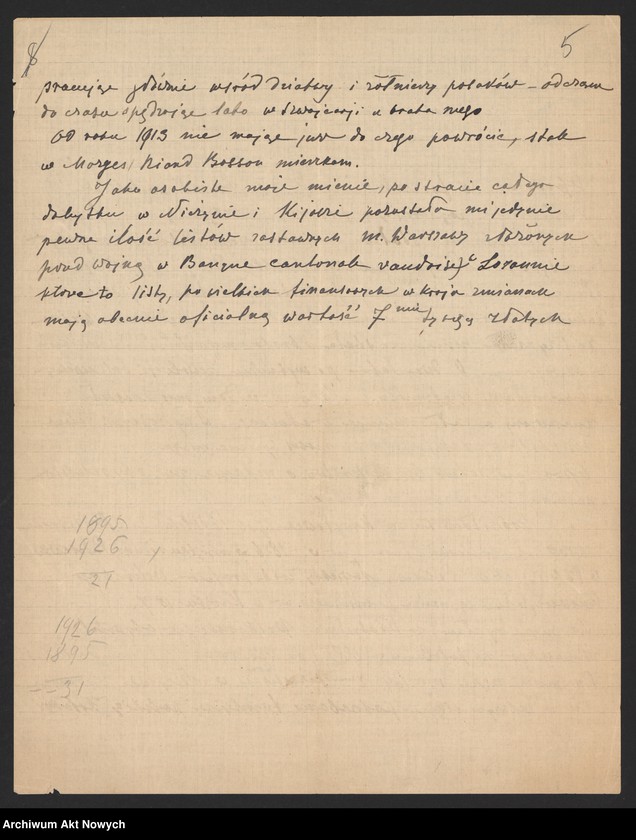 8
5
pracując głównie wśród dziatwy i żołnierzy polaków – od czasu
do czasu spędzając lato w Szwajcarji u brata mego
Od roku 1913 nie mając już do czego powrócić, stale
w Morges, Riond Bosson mieszkam.
Jako osobiste moje mienie, po stracie całego
dobytku w Nieżynie i Kijowie pozostała mi jedynie
pewna ilość listów zastawnych m. Warszawy złożonych
przed wojną w Banque cantonale vaudoise, Lozannie
które to listy, po wielkich finansowych w kraju zmianach
mają obecnie oficialną wartość 7 mie tysięcy złotych
1895
1926
21
1926
1895
31
Archiwum Akt Nowych